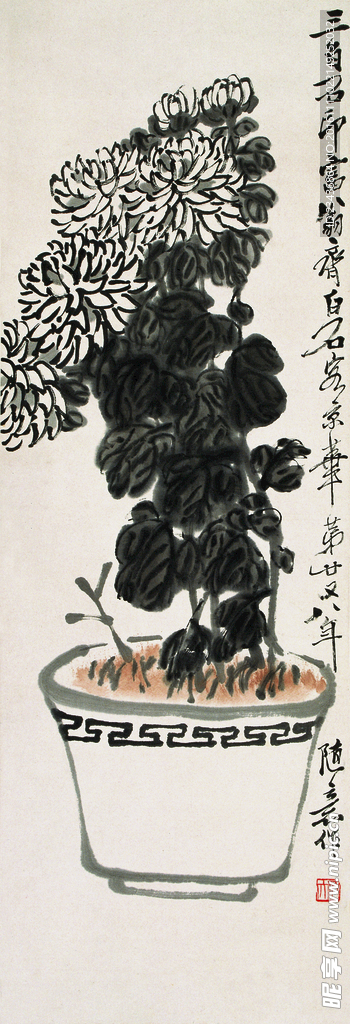 三百石印富翁齐白石客京华第廿又八年
随意作
昵享网 www.nipic.cn